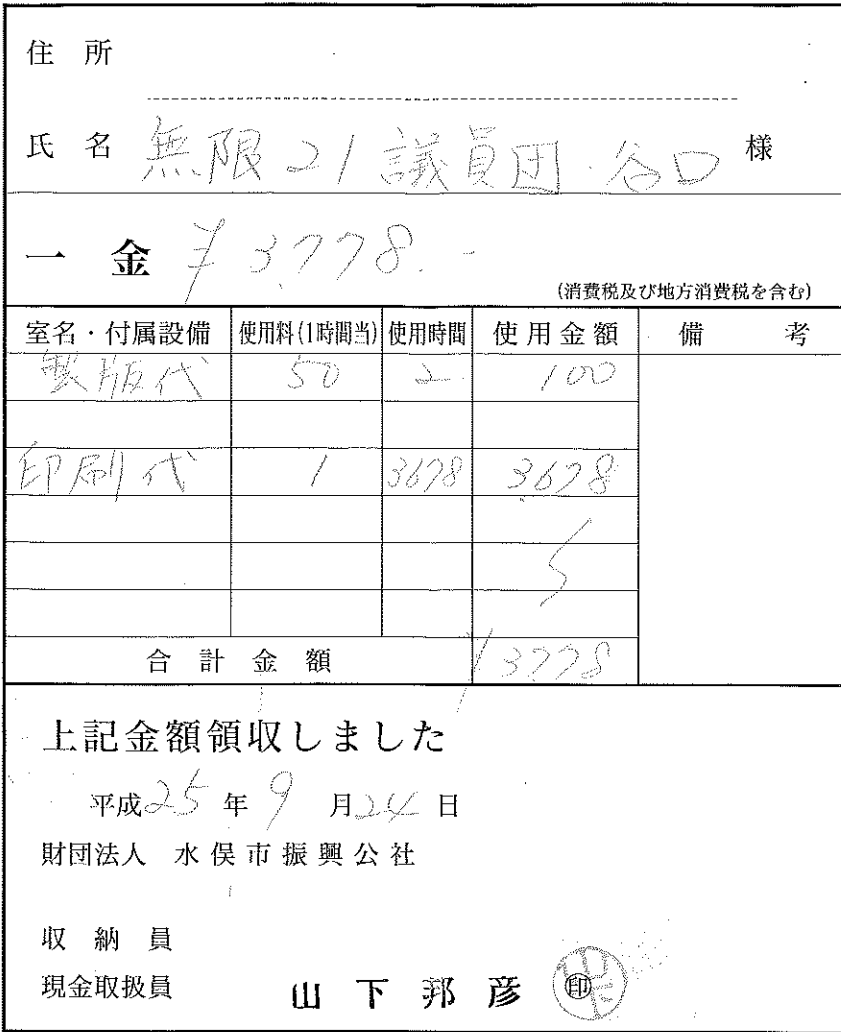 住所
氏名 無限21議員団・谷口 様
一金 ¥3,778.-
(消費税及び地方消費税を含む)
室名・付属設備 使用料(1時間当) 使用時間 使用金額 備考
製版代 50 2 100
印刷代 1 3678 3678
合計金額 ¥3778
上記金額領収しました
平成25年9月24日
財団法人 水俣市振興公社
収納員
現金取扱員 山下邦彦 ㊞
山下